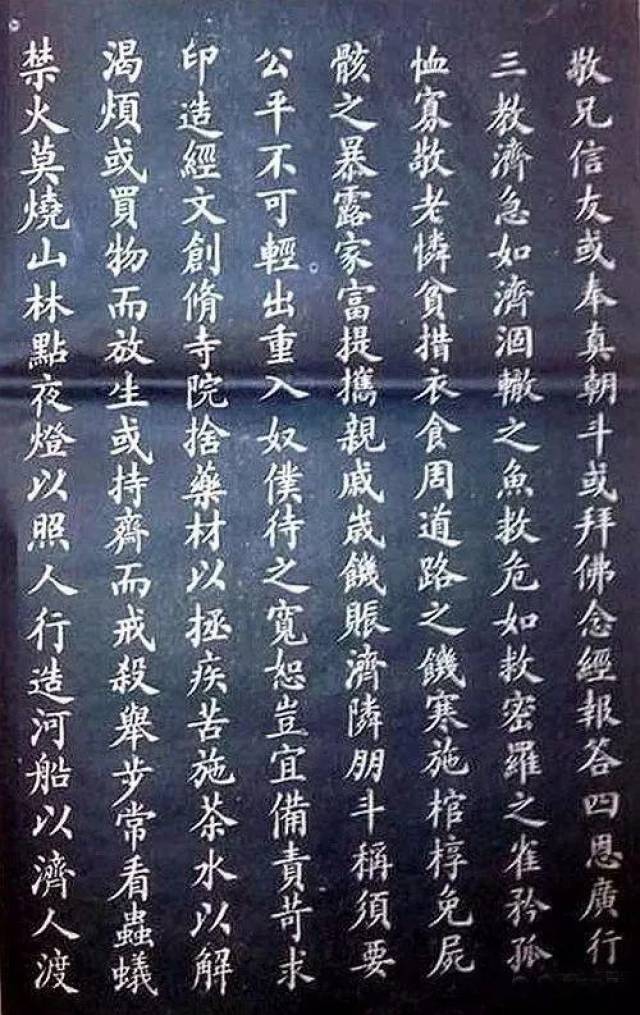 敬兄信友或奉真朝斗或拜佛念經報答四恩廣行
三教濟急如濟涸轍之魚救危如救密羅之雀矜孤
恤寡敬老憐貧措衣食周道路之饑寒施棺椁免屍
骸之暴露家富提攜親戚歲饑賑濟隣朋斗稱須要
公平不可輕出重入奴僕待之寬恕豈宜備責苛求
印造經文創脩寺院捨藥材以拯疾苦施茶水以解
渴煩或買物而放生或持齋而戒殺舉步常看蟲蟻
禁火莫燒山林點夜燈以照人行造河船以濟人渡